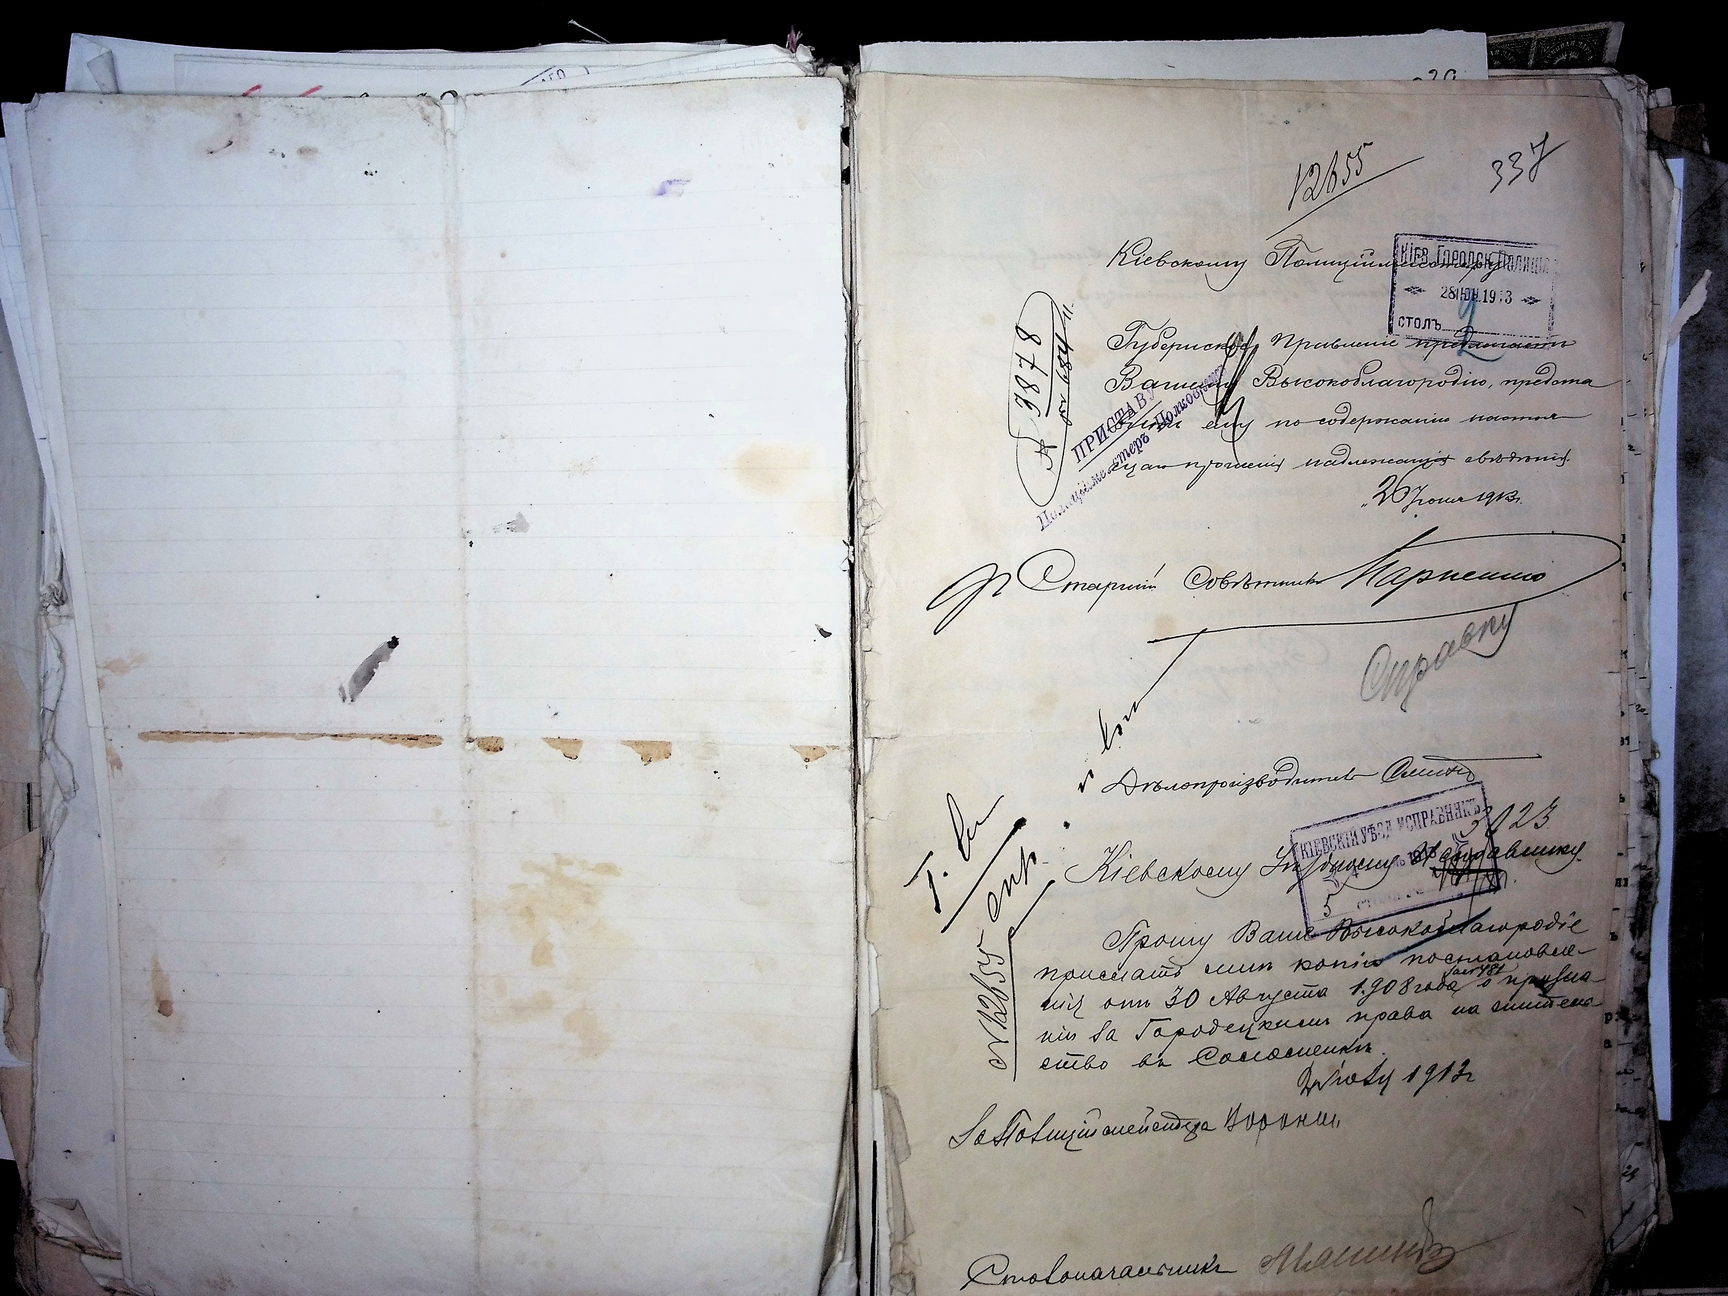 12655
337
Кіевскому Полиціймейстеру
КІЕВ. ГОРОДСК. ПОЛИЦІЯ
28 ІЮН. 1913
СТОЛЪ
2
Губернское Правленіе предлагаетъ
Вашему Высокоблагородію, предста
ему по содержанію настоя
щаго прошенія надлежащія свѣдѣнія
26 Іюня 1913 г.
№ 3878
ПРИСТАВУ
Полиціймейстеръ Полковникъ
Старшій Совѣтникъ
Справку
Дѣлопроизводитель
3823
КІЕВСКІЙ УѢЗД. ИСПРАВНИКЪ
5
Кіевскому Уѣздному Исправнику
№ 12655
Прошу Ваше Высокоблагородіе
прислать мнѣ копію постановле-
нія отъ 30 Августа 1908 года за № 481 о призна
ніи за Городецкимъ права на жительс
ство въ Соломенкѣ.
1913 г.
За Полиціймейстера
Столоначальникъ